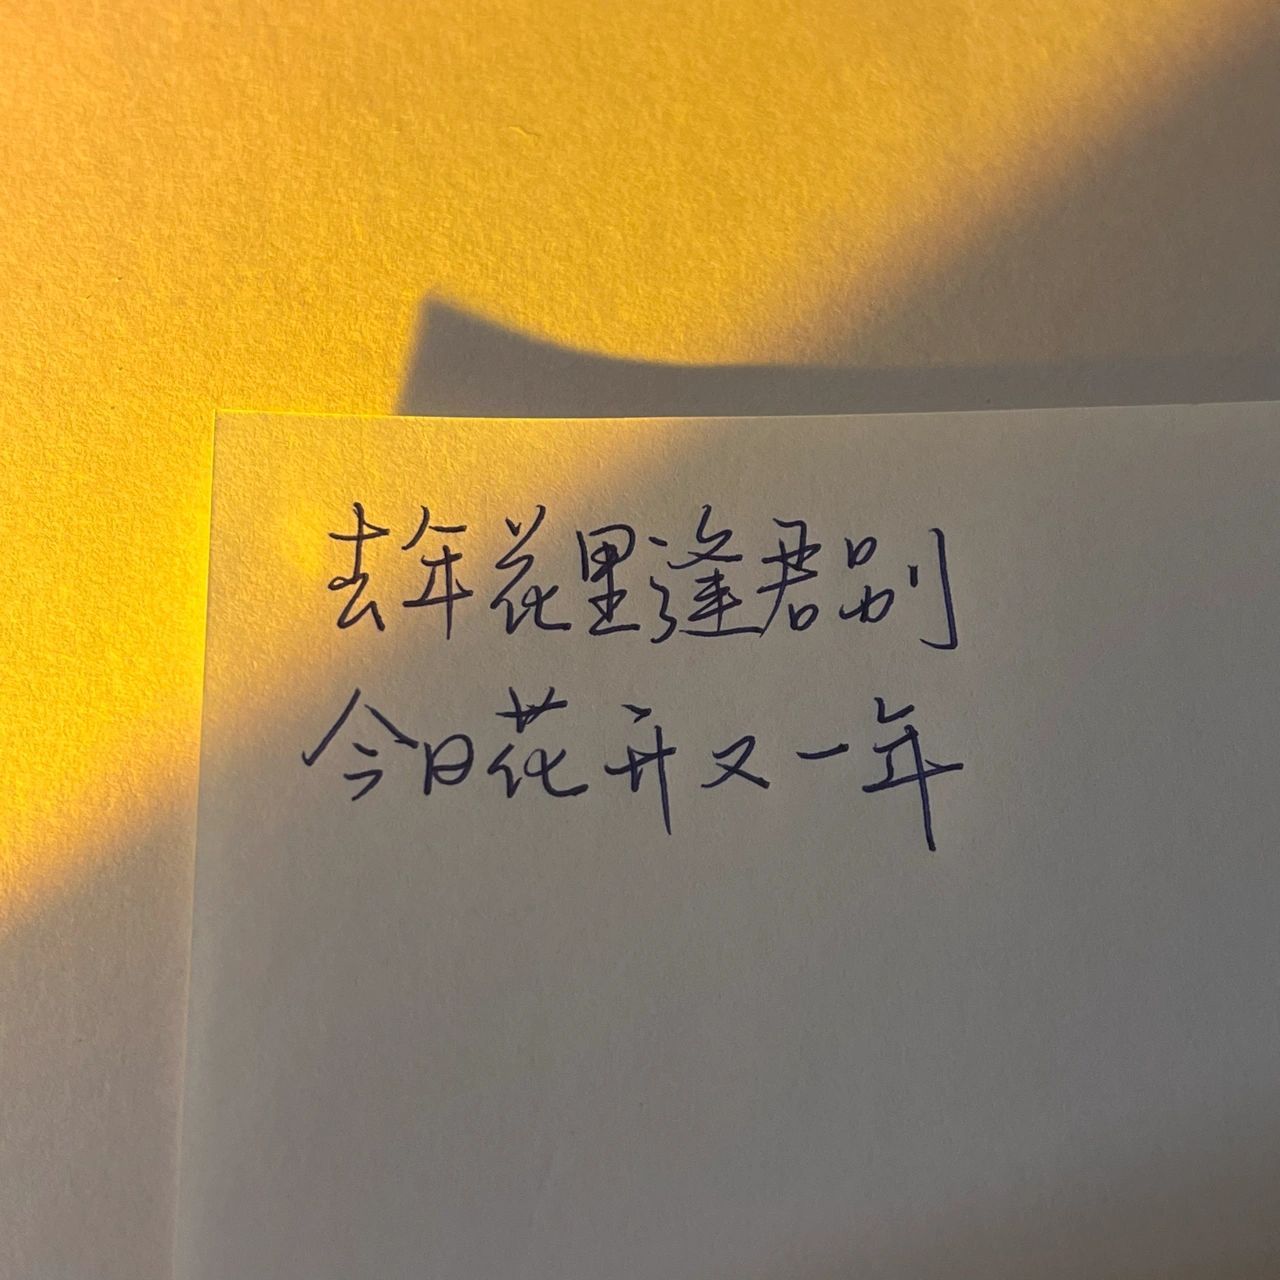 去年花里逢君别
今日花开又一年